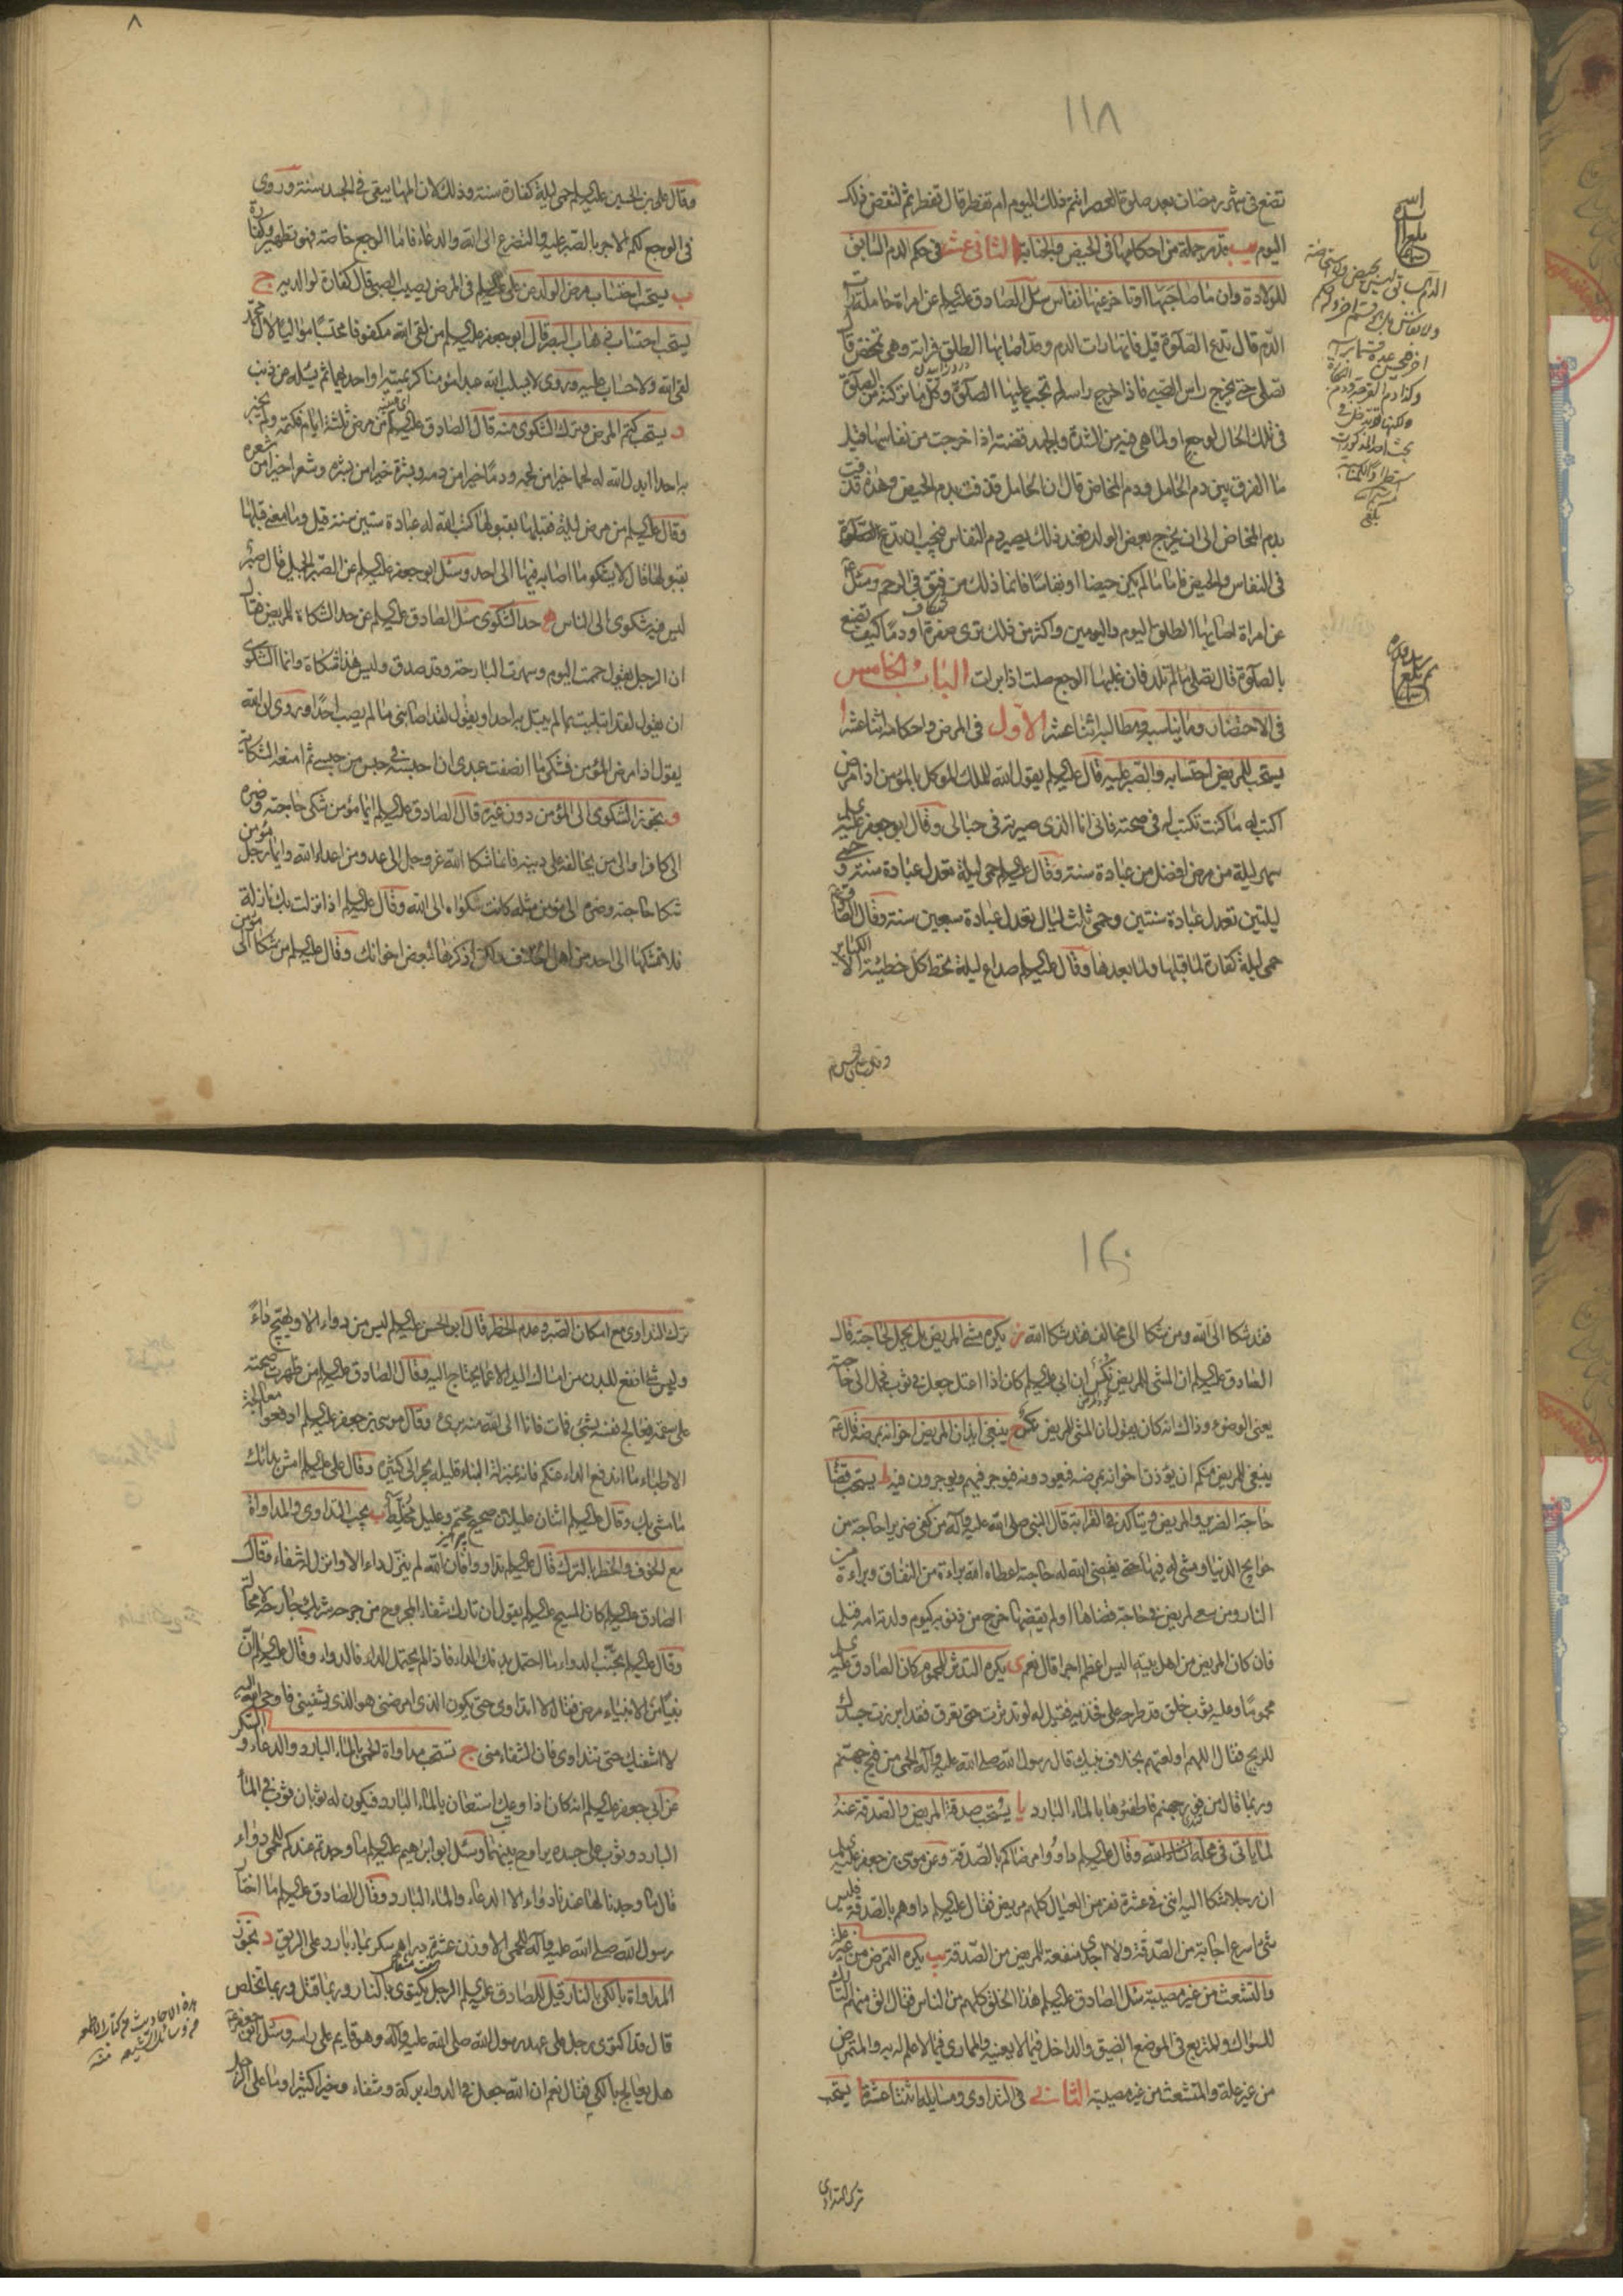 ١١٨
تضع في شهر رمضان بعد صلوة العصر اتتم ذلك اليوم ام تفطر قال تفطر ثم لتقض ذلك
اليوم يب تقدم جملة من احكامها في الحيض والجنابة الثاني عشر في حكم الدم السابق
للولادة وان ما صاحبها او تأخر عنها نفاس سئل الصادق عليه السلم عن امراة حاملة رات
الدم قال تدع الصلوة قيل فانها رات الدم وقد اصابها الطلق فراته وهي تمخض قال
تصلي حتى يخرج راس الصبي فاذا خرج راسه لم تجب عليها الصلوة وكل ما تركته من الصلوة
في تلك الحال لوجع او لما هي فيه من الشدة والجهد قضته اذا خرجت من نفاسها قيل
ما الفرق بين دم الحامل ودم المخاض قال ان الحامل قذفت بدم الحيض وهذه قذفت
بدم المخاض الى ان يخرج بعض الولد فعند ذلك يصير دم النفاس فيجب ان تدع الصلوة
في النفاس والحيض فاما ما لم يكن حيضا او نفاسا فانما ذلك من فتق في الرحم وسئل ع
عن امراة اصابها الطلق اليوم واليومين واكثر من ذلك ترى صفرة او دما كيف تصنع
بالصلوة قال تصلى ما لم تلد فان غلبها الوجع صلت اذا برات الباب الخامس
في الاحتضار وما يناسبه ومطالبه اثنا عشر الاول في المرض واحكامه اثنا عشر ا
يستحب للمريض احتسابه والصبر عليه قال عليه السلم يقول الله للملك الموكل بالمؤمن اذا مرض
اكتب له ما كنت تكتب له في صحته فاني انا الذي صيرته في حبالي وقال ابو جعفر عليه السلم
سهر ليلة من مرض افضل من عبادة سنة وقال عليه السلم حمى ليلة تعدل عبادة سنة وحمى
ليلتين تعدل عبادة سنتين وحمى ثلث ليال تعدل عبادة سبعين سنة وقال الصادق ع
حمى ليلة كفارة لما قبلها ولما بعدها وقال عليه السلم صداع ليلة تحط كل خطيئة الا الكبائر
وقال علي بن الحسين
وقال علي بن الحسين عليه السلم حمى ليلة كفارة سنة وذلك لان المها يبقى في الجسد سنة وروى
في الوجع كله الاجر بالصبر عليه والتضرع الى الله والدعاء فاما الوجع خاصة فهو تطهير وكفارة
ب يستحب احتساب مرض الولد عن علي عليه السلم في المرض يصيب الصبي قال كفارة لوالديه ج
يستحب احتساب ذهاب البصر قال ابو جعفر عليه السلم من لقى الله مكفوفا محتسبا مواليا لال محمد
لقى الله ولا حساب عليه وروى لا يسلب الله عبدا مؤمنا كريمتيه او احديهما ثم يسئله عن ذنب
د يستحب كتم المرض وترك الشكوى منه قال الصادق عليه السلم من مرض ثلثة ايام فكتمه ولم يخبر
به احدا ابدل الله له لحما خيرا من لحمه ودما خيرا من دمه وبشرة خيرا من بشرته وشعرا خيرا من شعره
وقال عليه السلم من مرض ليلة فقبلها بقبولها كتب الله له عبادة ستين سنة قيل وما معنى قبلها
بقبولها قال لا يشكو ما اصابه فيها الى احد وسئل ابو جعفر عليه السلم عن الصبر الجميل قال صبر
ليس فيه شكوى الى الناس ه حد الشكوى سئل الصادق عليه السلم عن حد الشكاة للمريض فقال
ان الرجل يقول حممت اليوم وسهرت البارحة وقد صدق وليس هذا شكاة وانما الشكوى
ان يقول لقد ابتليت بما لم يبتل به احد او يقول لقد اصابني ما لم يصب احدا وروى ان الله
يقول اذا مرض المؤمن فشكى ما انصفت عبدي ان احبسته في حبس من حبسي ثم امنعه الشكاية
و يجوز الشكوى الى المؤمن دون غيره قال الصادق عليه السلم ايما مؤمن شكى حاجته وضره
الى كافر او الى من يخالفه على دينه فانما شكا الله عز وجل الى عدو من اعداء الله وايما رجل مؤمن
شكا حاجته وضره الى مؤمن مثله كانت شكواه الى الله وقال عليه السلم اذا نزلت بك نازلة
فلا تشكها الى احد من اهل الخلاف ولكن اذكرها لبعض اخوانك وقال عليه السلم من شكا الى مؤمن
١٢٠
فقد شكا الى الله ومن شكا الى مخالف فقد شكا الله ز يكره مشي المريض بل يحمل لحاجته قال
الصادق عليه السلم ان المشي للمريض نكس ان ابي عليه السلم كان اذا اعتل جعل في ثوب فحمل الى حاجته
يعني الوضوء وذاك انه كان يقول ان المشي للمريض نكس ح ينبغي ايذان المريض اخوانه بمرضه قال ع
ينبغي للمريض منكم ان يؤذن اخوانه بمرضه فيعودونه فيوجر فيهم ويوجرون فيه ط يستحب قضاء
حاجة الضرير والمريض ويتاكد في القرابة قال النبي صلى الله عليه وآله من كفى ضريرا حاجة من
حوايج الدنيا ومشى له فيها حتى يقضي الله له حاجته اعطاه الله براءة من النفاق وبراءة من
النار ومن سعى لمريض في حاجة قضاها او لم يقضها خرج من ذنوبه كيوم ولدته امه قيل
فان كان المريض من اهل بيته اليس اعظم اجرا قال نعم ى يكره التدثر للمحموم كان الصادق عليه السلم
محموما وعليه ثوب خلق قد طرحه على فخذيه فقيل له لو تدثرت حتى تعرق فقد ابرزت جسدك
للريح فقال اللهم اولعتهم بخلاف نبيك قال رسول الله صلى الله عليه وآله الحمى من فيح جهنم
وربما قال من فور جهنم فاطفئوها بالماء البارد يا يستحب صدقة المريض والصدقة عنه
لما ياتي في محله ان شاء الله وقال عليه السلم داووا مرضاكم بالصدقة وعن موسى بن جعفر عليه السلم
ان رجلا شكا اليه انني في عشرة نفر من العيال كلهم مريض فقال عليه السلم داوهم بالصدقة فليس
شيء اسرع اجابة من الصدقة ولا اجدى منفعة للمريض من الصدقة يب يكره التمرض من غير علة
والتشعث من غير مصيبة سئل الصادق عليه السلم هذا الخلق كلهم من الناس فقال الق منهم التارك
للسواك والمتربع في الموضع الضيق والداخل فيما لا يعنيه والمماري فيما لا علم له به والمتمرض
من غير علة والمتشعث من غير مصيبة الثاني في التداوي ومسايله اثنتا عشرة ا يستحب
ترك التداوي
ترك التداوي مع امكان الصبر وعدم الخطر قال ابو الحسن عليه السلم ليس من دواء الا ويهيج داء
وليس شئ انفع للبدن من امساك اليد الا عما يحتاج اليه وقال الصادق عليه السلم من ظهرت صحته
على سقمه فعالج نفسه بشئ فمات فانا الى الله منه بريء وقال موسى بن جعفر عليه السلم ادفعوا معالجة
الاطباء ما اندفع الداء عنكم فانه بمنزلة البناء قليله يجر الى كثيره وقال علي عليه السلم امش بدائك
ما مشى بك وقال عليه السلم اثنان عليلان صحيح محتم وعليل مخلط ب يجب التداوي والمداواة
مع الخوف والخطر بالترك قال عليه السلم تداووا فان الله لم ينزل داء الا وانزل له شفاء وقال
الصادق عليه السلم كان المسيح عليه السلم يقول ان تارك شفاء المجروح من جرحه شريك جارحه لا محالة
وقال عليه السلم تجنب الدواء ما احتمل بدنك الداء فاذا لم يحتمل الداء فالدواء وقال عليه السلم ان
نبيا من الانبياء مرض فقال لا اتداوى حتى يكون الذي امرضني هو الذي يشفيني فاوحى الله اليه
لا اشفيك حتى تتداوى فان الشفاء مني ج تستحب مداواة الحمى بالماء البارد والدعاء والسكر
عن ابي جعفر عليه السلم انه كان اذا وعك استعان بالماء البارد فيكون له ثوبان ثوب في الماء
البارد وثوب على جسده يراوح بينهما وسئل ابو ابرهيم عليه السلم ما وجدتم عندكم للحمى دواء
قال ما وجدنا لها عندنا دواء الا الدعاء والماء البارد وقال الصادق عليه السلم ما اختار
رسول الله صلى الله عليه وآله للحمى الا وزن عشرة دراهم سكر بماء بارد على الريق د تجوز
المداواة بالكي بالنار قيل للصادق عليه السلم الرجل يكتوى بالنار وربما قتل وربما تخلص
قال قد اكتوى رجل على عهد رسول الله صلى الله عليه وآله وهو قايم على راسه وسئل ابو جعفر ع
هل يعالج بالكي فقال نعم ان الله جعل في الدواء بركة وشفاء وخيرا كثيرا وما على الرجل